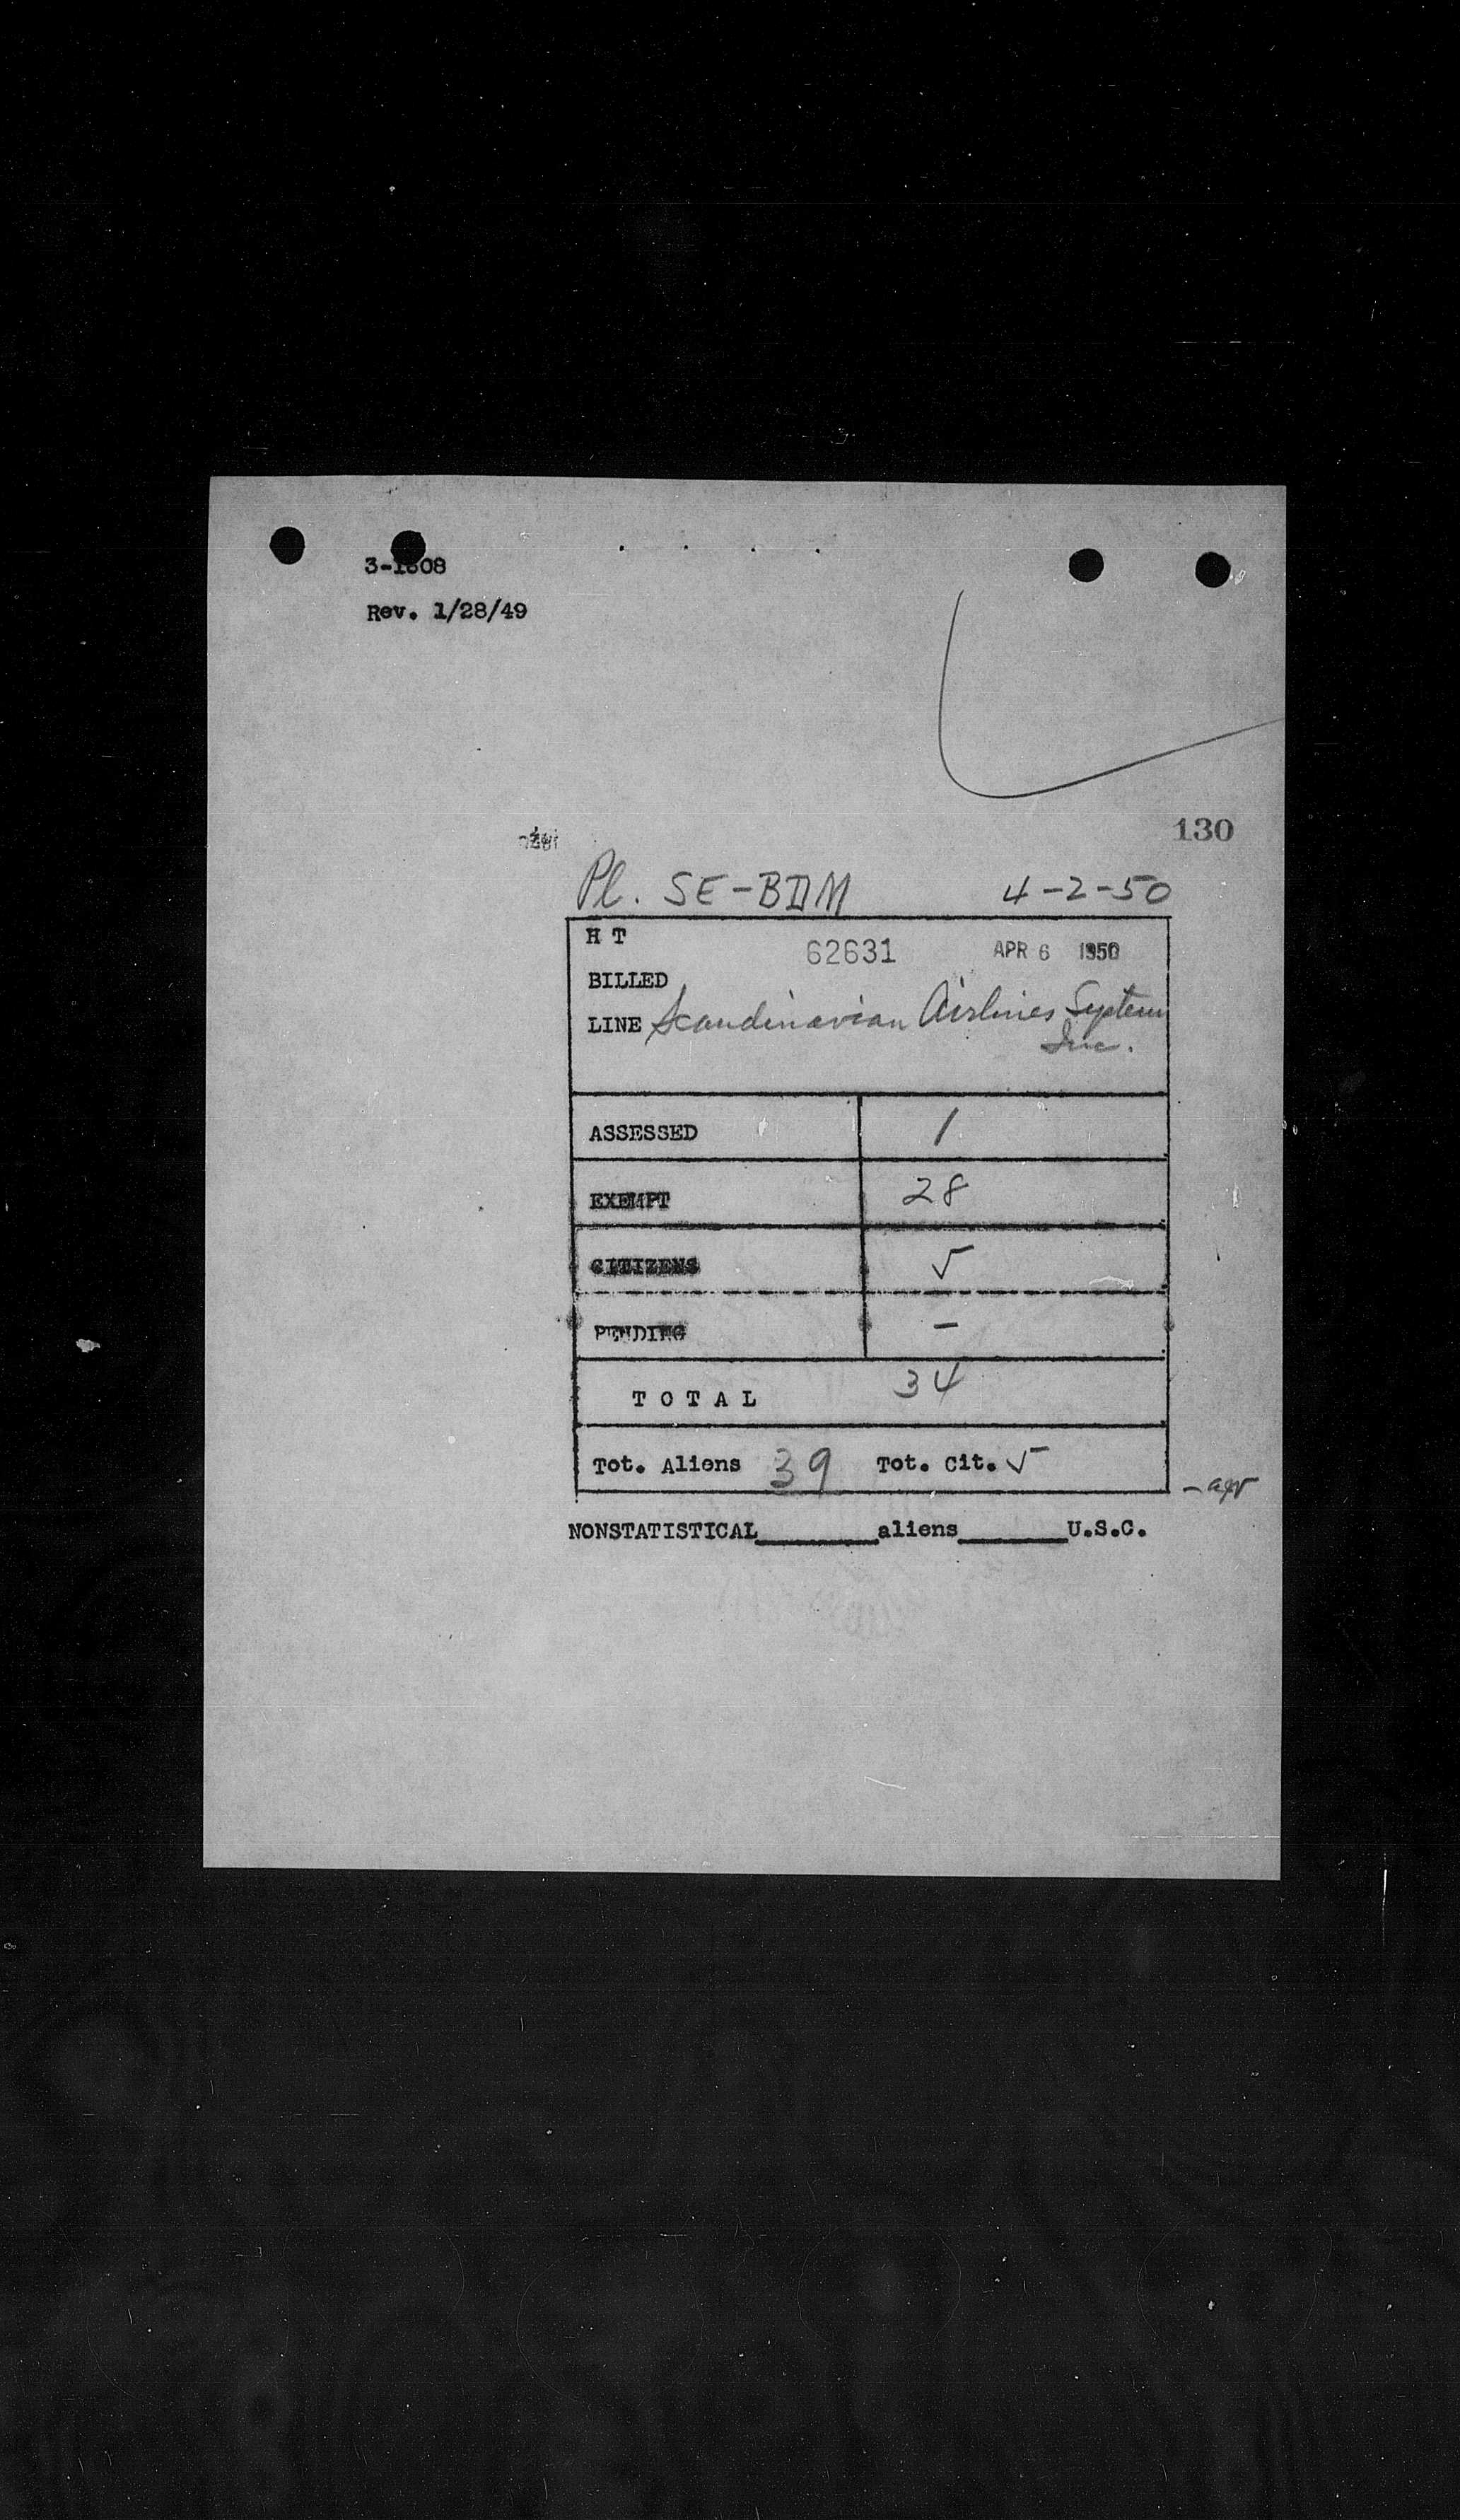 3-1608
Rev. 1/28/49
130
Pl. SE-BDM 4-2-50
H T
62631 APR 6 1950
BILLED
LINE Scandinavian Airlines System
Inc.
ASSESSED 1
EXEMPT 28
CITIZENS 5
PENDING -
T O T A L 34
Tot. Aliens 39 Tot. Cit. 5
NONSTATISTICAL________aliens_______U.S.C.